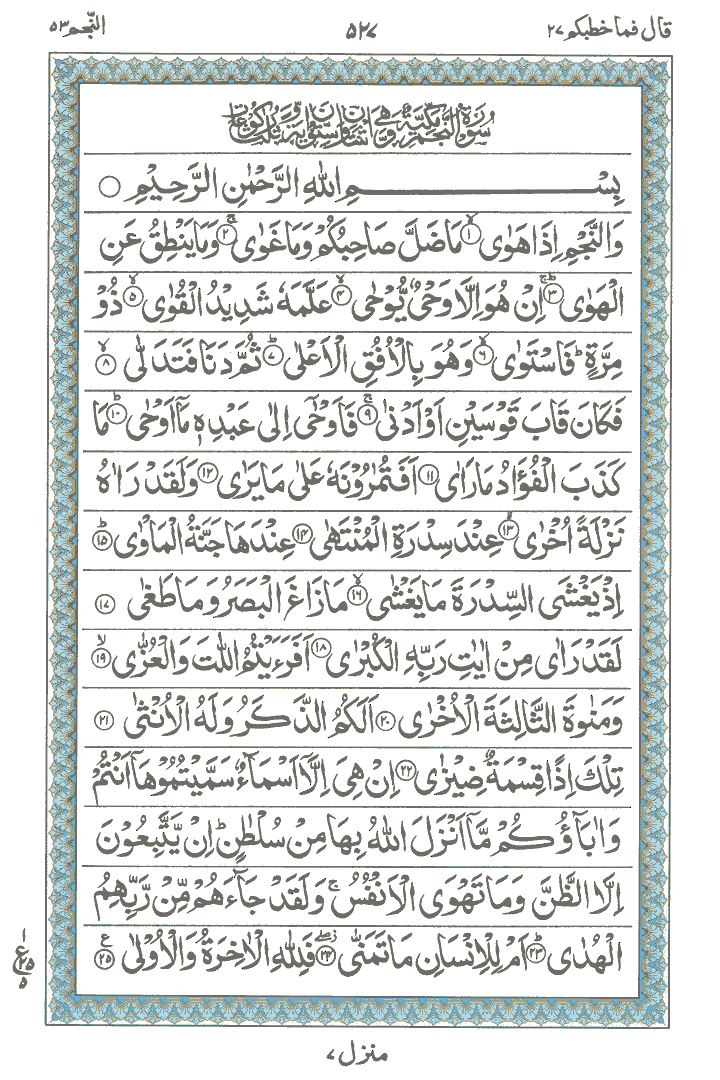 قال فما خطبكم ٢٧ ٥٢٧ النّجم ٥٣
سُوْرَةُ النَّجْمِ مَكِّيَّةٌ وَّهِيَ اثْنَتَانِ وَسِتُّوْنَ اٰيَةً وَّثَلٰثُ رُكُوْعَاتٍ
بِسْمِ اللّٰهِ الرَّحْمٰنِ الرَّحِيْمِ ○
وَالنَّجْمِ اِذَا هَوٰىۙ ١ مَا ضَلَّ صَاحِبُكُمْ وَمَا غَوٰىۚ ٢ وَمَا يَنْطِقُ عَنِ
الْهَوٰىؕ ٣ اِنْ هُوَ اِلَّا وَحْيٌ يُّوْحٰىۙ ٤ عَلَّمَهٗ شَدِيْدُ الْقُوٰىۙ ٥ ذُوْ
مِرَّةٍؕ فَاسْتَوٰىۙ ٦ وَهُوَ بِالْاُفُقِ الْاَعْلٰىؕ ٧ ثُمَّ دَنَا فَتَدَلّٰىۙ ٨
فَكَانَ قَابَ قَوْسَيْنِ اَوْ اَدْنٰىۚ ٩ فَاَوْحٰۤى اِلٰى عَبْدِهٖ مَاۤ اَوْحٰىؕ ١٠ مَا
كَذَبَ الْفُؤَادُ مَا رَاٰى ١١ اَفَتُمٰرُوْنَهٗ عَلٰى مَا يَرٰى ١٢ وَلَقَدْ رَاٰهُ
نَزْلَةً اُخْرٰىۙ ١٣ عِنْدَ سِدْرَةِ الْمُنْتَهٰى ١٤ عِنْدَهَا جَنَّةُ الْمَاْوٰىؕ ١٥
اِذْ يَغْشَى السِّدْرَةَ مَا يَغْشٰىۙ ١٦ مَا زَاغَ الْبَصَرُ وَمَا طَغٰى ١٧
لَقَدْ رَاٰى مِنْ اٰيٰتِ رَبِّهِ الْكُبْرٰى ١٨ اَفَرَءَيْتُمُ اللّٰتَ وَالْعُزّٰىۙ ١٩
وَمَنٰوةَ الثَّالِثَةَ الْاُخْرٰى ٢٠ اَلَكُمُ الذَّكَرُ وَلَهُ الْاُنْثٰى ٢١
تِلْكَ اِذًا قِسْمَةٌ ضِيْزٰى ٢٢ اِنْ هِيَ اِلَّاۤ اَسْمَآءٌ سَمَّيْتُمُوْهَاۤ اَنْتُمْ
وَاٰبَآؤُكُمْ مَّاۤ اَنْزَلَ اللّٰهُ بِهَا مِنْ سُلْطٰنٍؕ اِنْ يَّتَّبِعُوْنَ
اِلَّا الظَّنَّ وَمَا تَهْوَى الْاَنْفُسُۚ وَلَقَدْ جَآءَهُمْ مِّنْ رَّبِّهِمُ
الْهُدٰىؕ ٢٣ اَمْ لِلْاِنْسَانِ مَا تَمَنّٰىؗۖ ٢٤ فَلِلّٰهِ الْاٰخِرَةُ وَالْاُوْلٰى ٢٥ ع
١
ع ٢٥
٥
منزل ٧